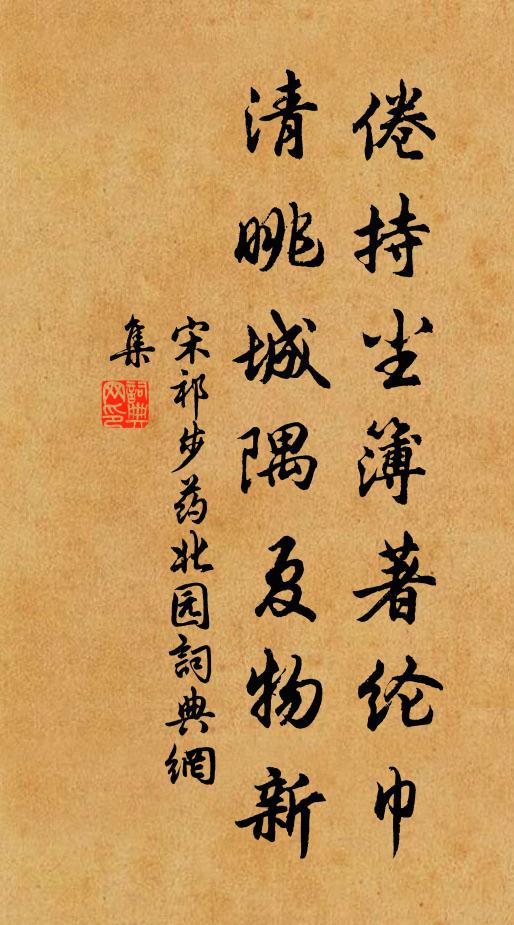 倦持尘簿著纶巾
清眺城隅夏物新
宋祁步药北园詞典網
集
詞典
网印